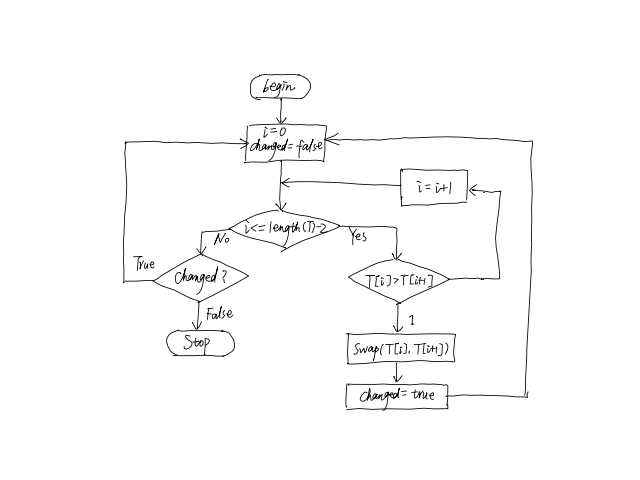 begin
i=0
changed=false
i=i+1
i<=length(T)-2
No
Yes
True
changed?
T[i]>T[i+1]
False
1
Stop
Swap(T[i], T[i+1])
changed=true